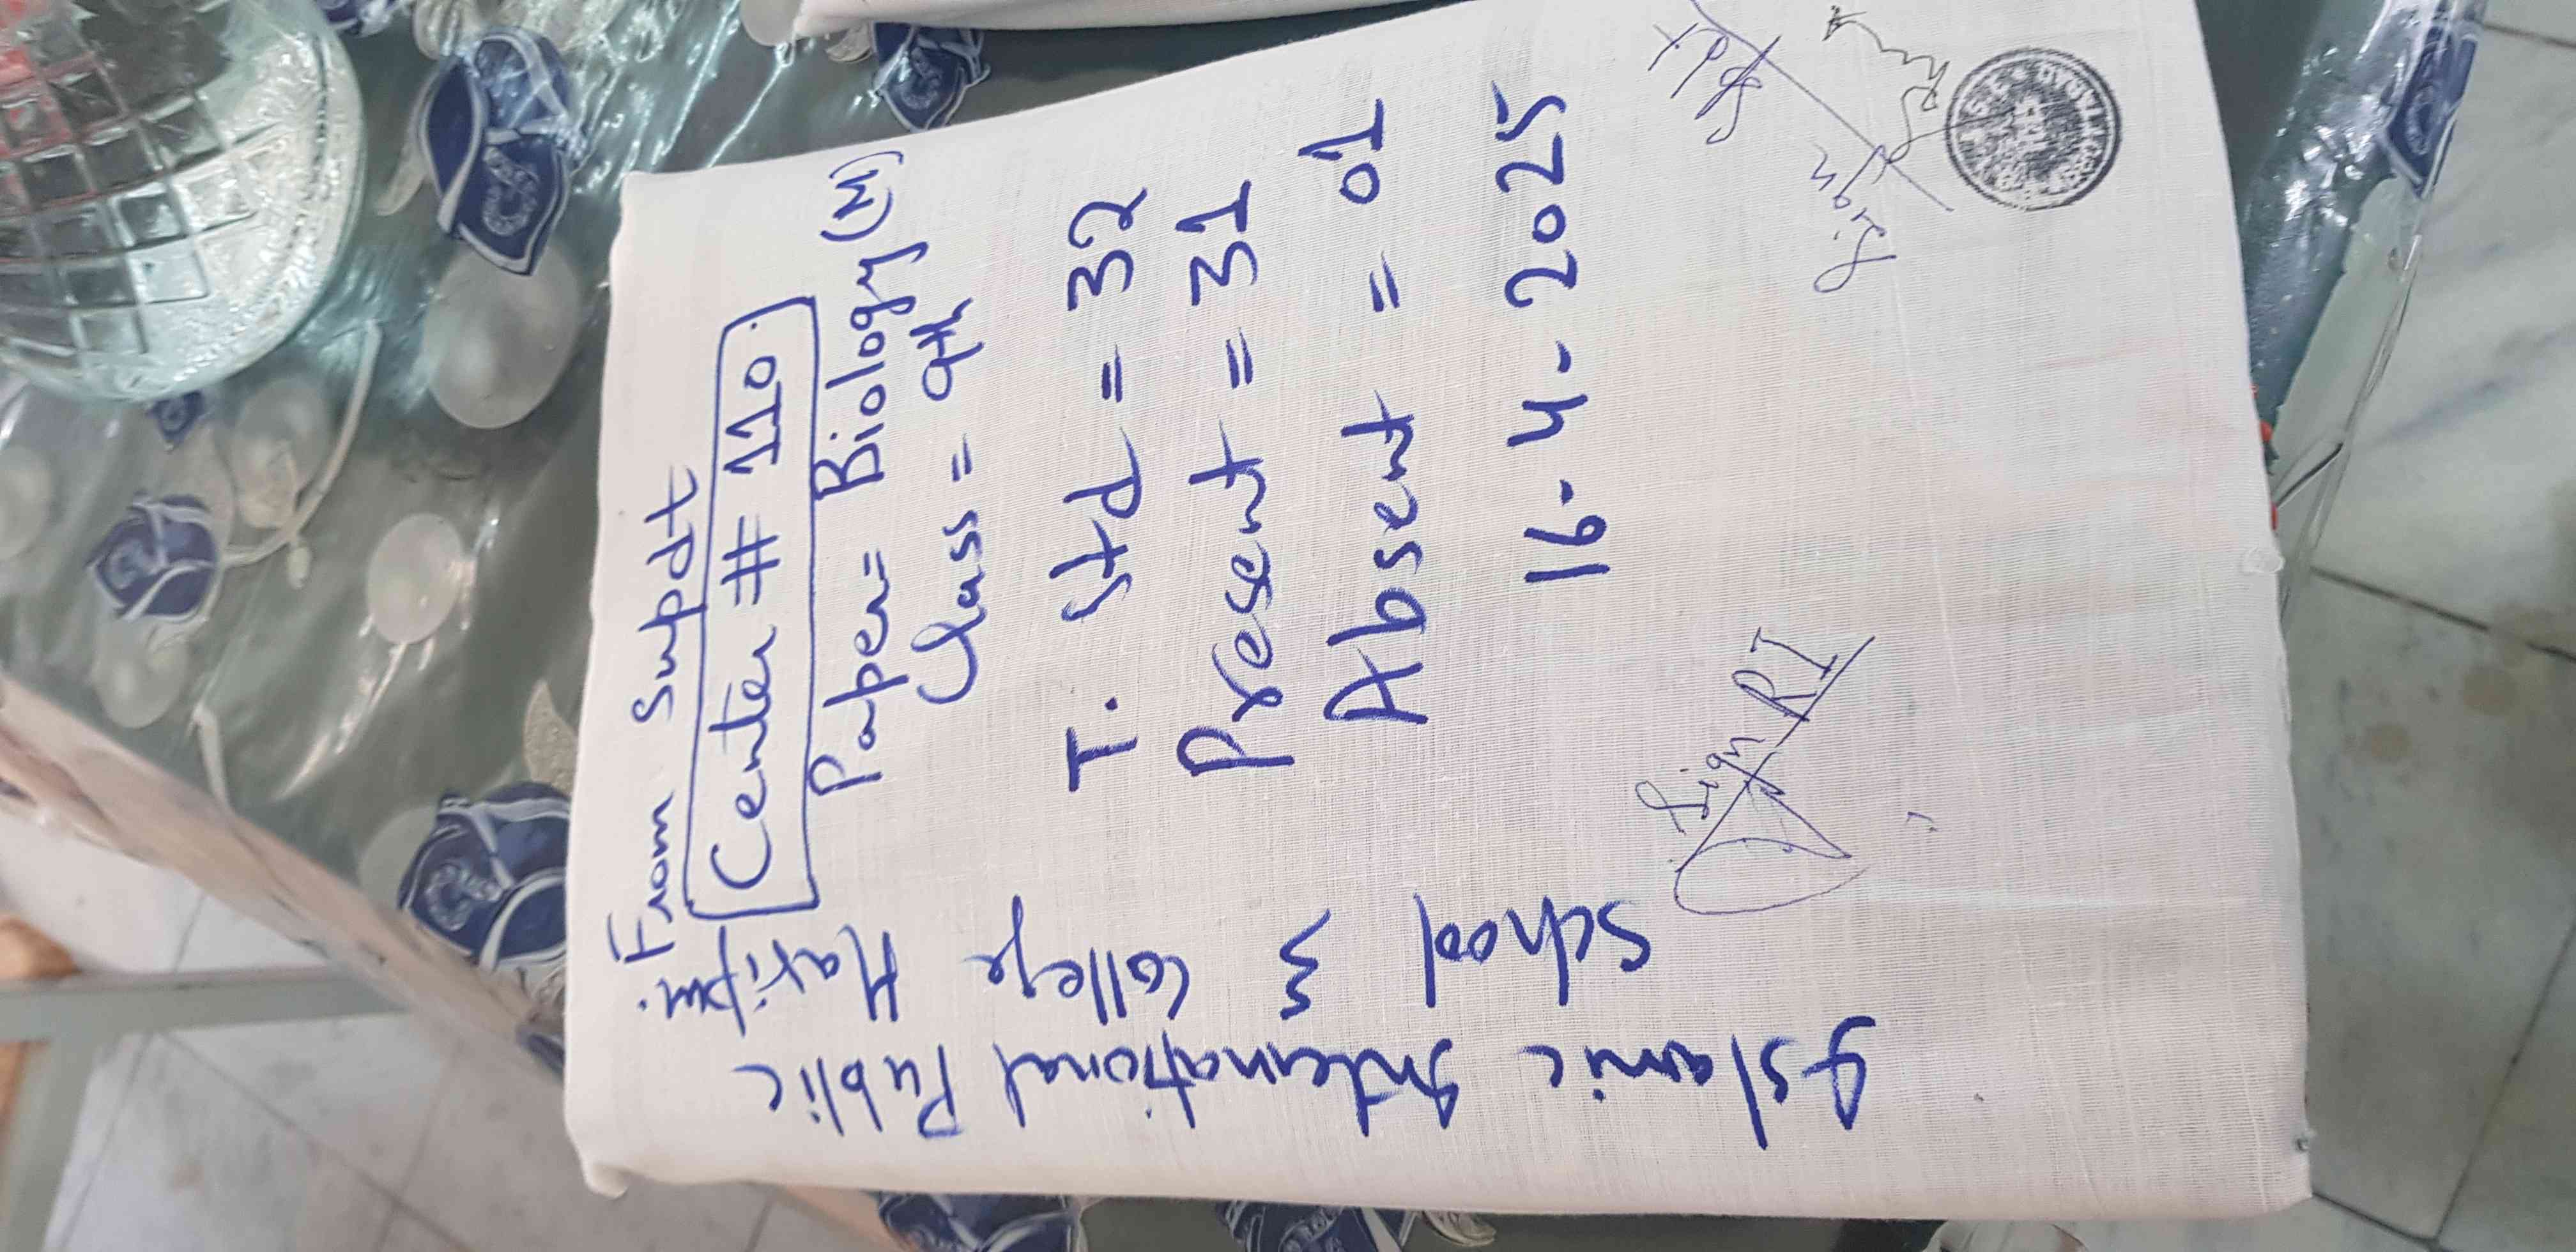 From Supdt
Center # 110
Paper = Biology (M)
Class = 9th
T. Std = 32
Present = 31
Absent = 01
16-4-2025
Sign RI
Sign Spdt.
Islamic International Public
School & College Haripur.